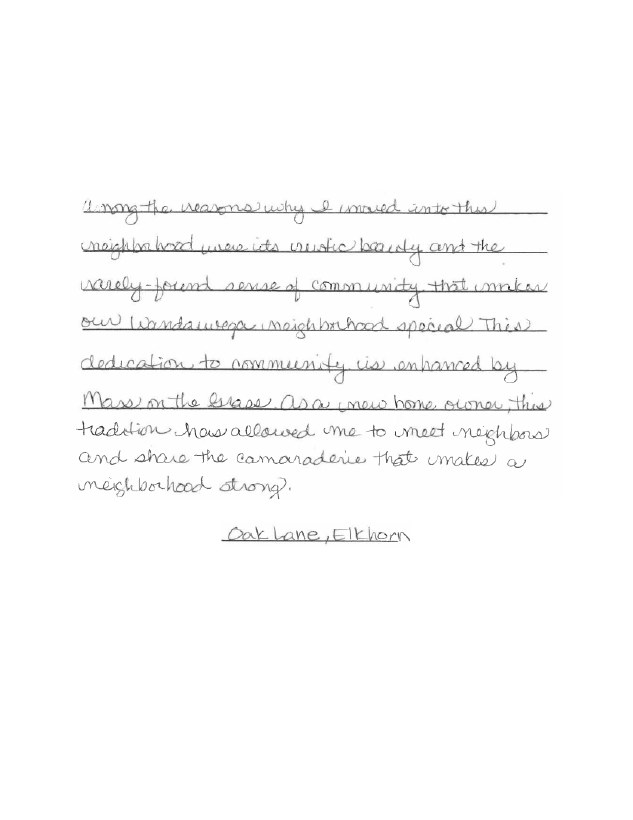 Among the reasons why I moved into this
neighborhood were its rustic beauty and the
rarely-found sense of community that makes
our Wandawega neighborhood special This
dedication to community is enhanced by
Mass on the Grass. As a new home owner, this
tradition has allowed me to meet neighbors
and share the camaraderie that makes a
neighborhood strong.
Oak Lane, Elkhorn